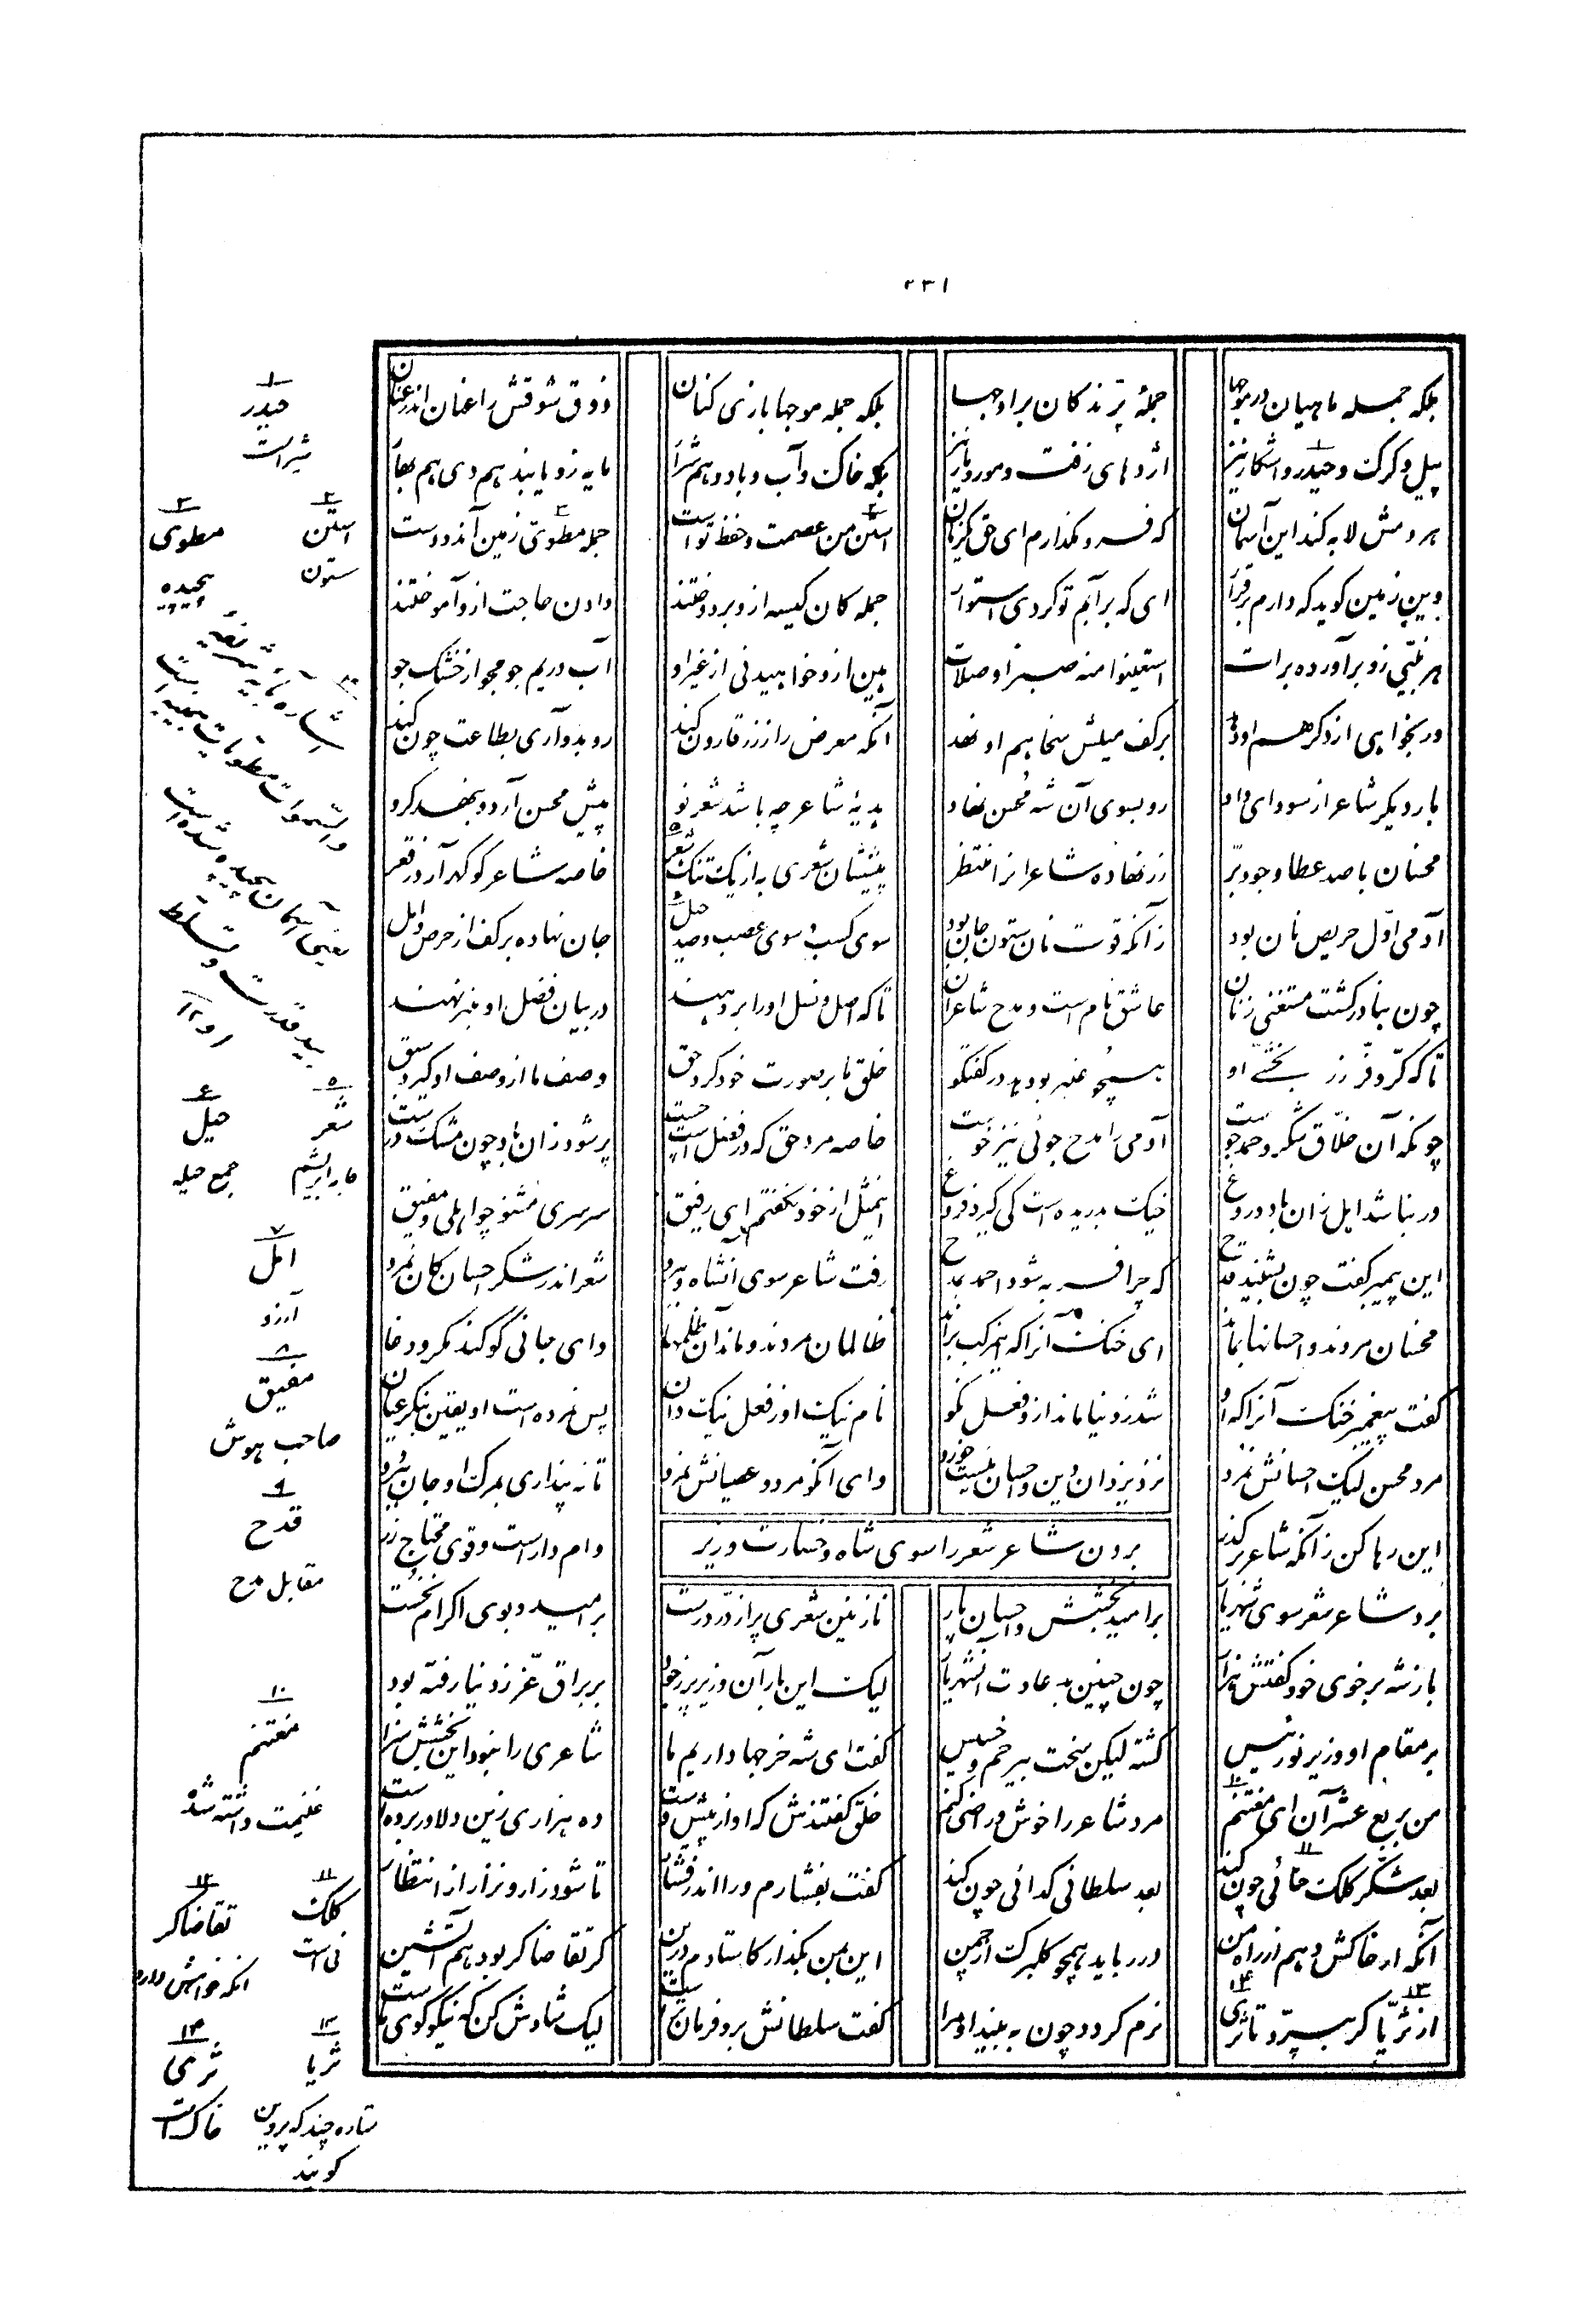 ۳۳۱
بلکه جمله ماهیان در موجها جملهٔ پرندگان بر اوجها بلکه جمله موجها بازی کنان ذوق شوقش را عیان اندر عیان
پیل و گرگ و حیدر و اشکار نیز اژدهای زفت و مور و مار نیز بلکه خاک و آب و باد و هم شرار مایه زو یابند هم دی هم بهار
هر دمش لابه کند این آسمان که فرو مگذارم ای حق یکزمان استن من عصمت و حفظ تو است جمله مطوی زمین آن دو دست
وین زمین گوید که دارم برقرار ای که بر آبم تو کردی استوار جمله گان کیسه ازو بر دوختند دادن حاجت ازو آموختند
هر نبیی زو برآورده برات استعینوا منه صبراً و صلات بین ازو خواهید نی از غیر او آب در یم جو مجو از خشک جو
ور بخواهی از دگر هم او دهد بر کف میلش سخا هم او نهد آنکه معرض را ز زر قارون کند رو بدو آری بطاعت چون کند
بار دیگر شاعر از سودای داد رو بسوی آن شه محسن نهاد هدیهٔ شاعر چه باشد شعر نو پیش محسن آرد و بنهد گرو
محسنان با صد عطا و جود و بر زر نهاده شاعران را منتظر پیششان شعری به از یک تنگ شعر خاصه شاعر کو گهر آرد ز قعر
آدمی اوّل حریص نان بود زآنکه قوت نان ستون جان بود سوی کسب و سوی غصب و صد حیل جان نهاده بر کف از حرص و امل
چون بنادر گشت مستغنی ز نان عاشق نام است و مدح شاعران تا که اصل و نسل او را بر دهند در بیان فضل او منبر نهند
تا که کرّ و فرّ و زر بخشیّ او همچو عنبر بو دهد در گفتگو خلق ما بر صورت خود کرد حق وصف ما از وصف او گیرد سبق
چونکه آن خلّاق شکر و حمد جوست آدمی را مدح جوئی نیز خوست خاصه مرد حق که در فضل است چست پر شود زان باد چون مشک درست
ور نباشد اهل زان باد دروغ خیک بدریده است کی گیرد فروغ این مثل از خود نگفتم ای رفیق سرسری مشنو چو اهلی و مفیق
این پیمبر گفت چون بشنید قدح که چرا فربه شود احمد بمدح رفت شاعر سوی آنشاه و ببرد شعر اندر شکر احسان کان نمرد
محسنان مردند و احسانها بماند ای خنک آنرا که این مرکب براند ظالمان مردند و ماند آن ظلمها وای جانی کو کند مکر و دها
گفت پیغمبر خنک آنرا که او شد ز دنیا ماند ازو فعل نکو نام نیک او ز فعل نیک دان پس نمرده است او یقین بنگر عیان
مرد محسن لیک احسانش نمرد نزد یزدان دین و احسان نیست خورد وای آنکو مرد و عصیانش نمرد تا نپنداری بمرگ او جان ببرد
این رها کن زآنکه شاعر بر گذر وام دار است و قوی محتاج زر
بردن شاعر شعر را سوی شاه و خسارت وزیر
برد شاعر شعر سوی شهریار بر امید بخشش و احسان پار نازنین شعری پر از درّ درست بر امید و بوی اکرام نخست
باز شه بر خوی خود گفتش هزار چون چنین بد عادت آن شهریار لیک این بار آن وزیر پر ز جود بر براق عزّ ز دنیا رفته بود
بر مقام او وزیر نو رئیس گشته لیکن سخت بیرحم و خسیس گفت ای شه خرجها داریم ما شاعری را نبود این بخشش سزا
من بربع عشر آن ای مغتنم مرد شاعر را خوش و راضی کنم خلق گفتندش که او از پیش دست ده هزاری زین دلاور برده است
بعد شکر کلک خائی چون کند بعد سلطانی گدائی چون کند گفت بفشارم ورا اندر فشار تا شود زار و نزار از انتظار
آنگه ار خاکش دهم از راه من در رباید همچو گلبرگ از چمن این بمن بگذار کاستادم درین گر تقاضاگر بود هم آتشین
از ثریّا گر بپرّد تا ثری نرم گردد چون به بیند او مرا گفت سلطانش برو فرمان تراست لیک شادش کن که نیکو گوی ماست
۱
حیدر
شیر است
۲ ۳
استن مطوی
ستون پیچیده
۴
اشاره بآیه شریفه
والسموات مطویات بیمینه
یعنی آسمان پیچیده شده است
بید قدرت و تسلط
او
۵ ۶
شعر حیل
جامه ابریشم جمع حیله
۷
امل
آرزو
۸
مفیق
صاحب هوش
۹
قدح
مقابل مدح
۱۰
مغتنم
غنیمت داشته شده
۱۱ ۱۲
کلک تقاضاگر
نی است آنکه خواهش دارد
۱۳ ۱۴
ثریا ثری
ستاره چند که پروین خاک است
گویند